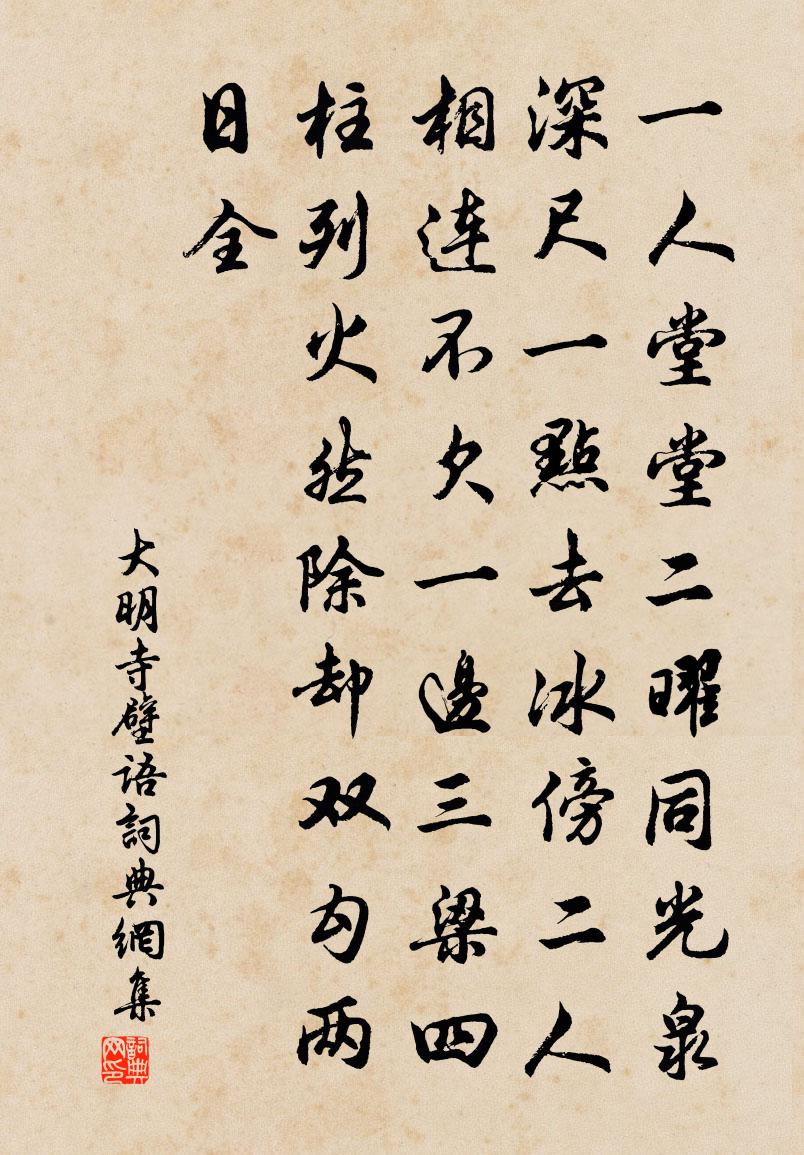 一人堂堂二曜同光泉
深尺一點去冰傍二人
相連不欠一邊三梁四
柱列火然除却双勾两
日全
大明寺壁语詞典網集
詞典网印